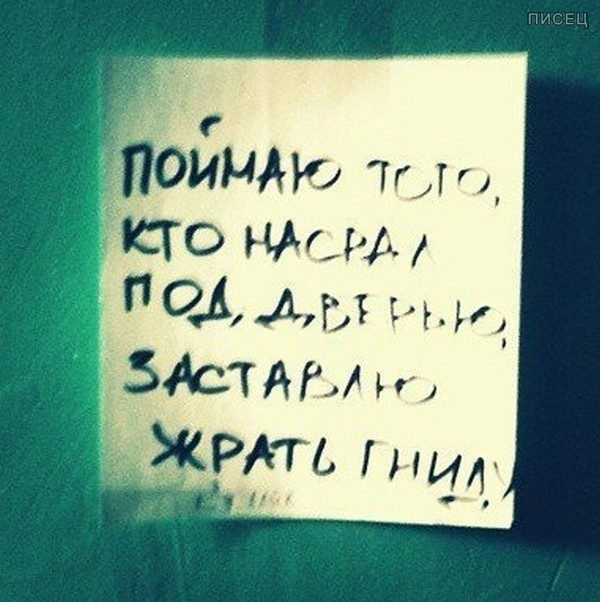 ПИСЕЦ
ПОЙМАЮ ТОГО,
КТО НАСРАЛ
ПОД ДВЕРЬЮ,
ЗАСТАВЛЮ
ЖРАТЬ ГНИДУ